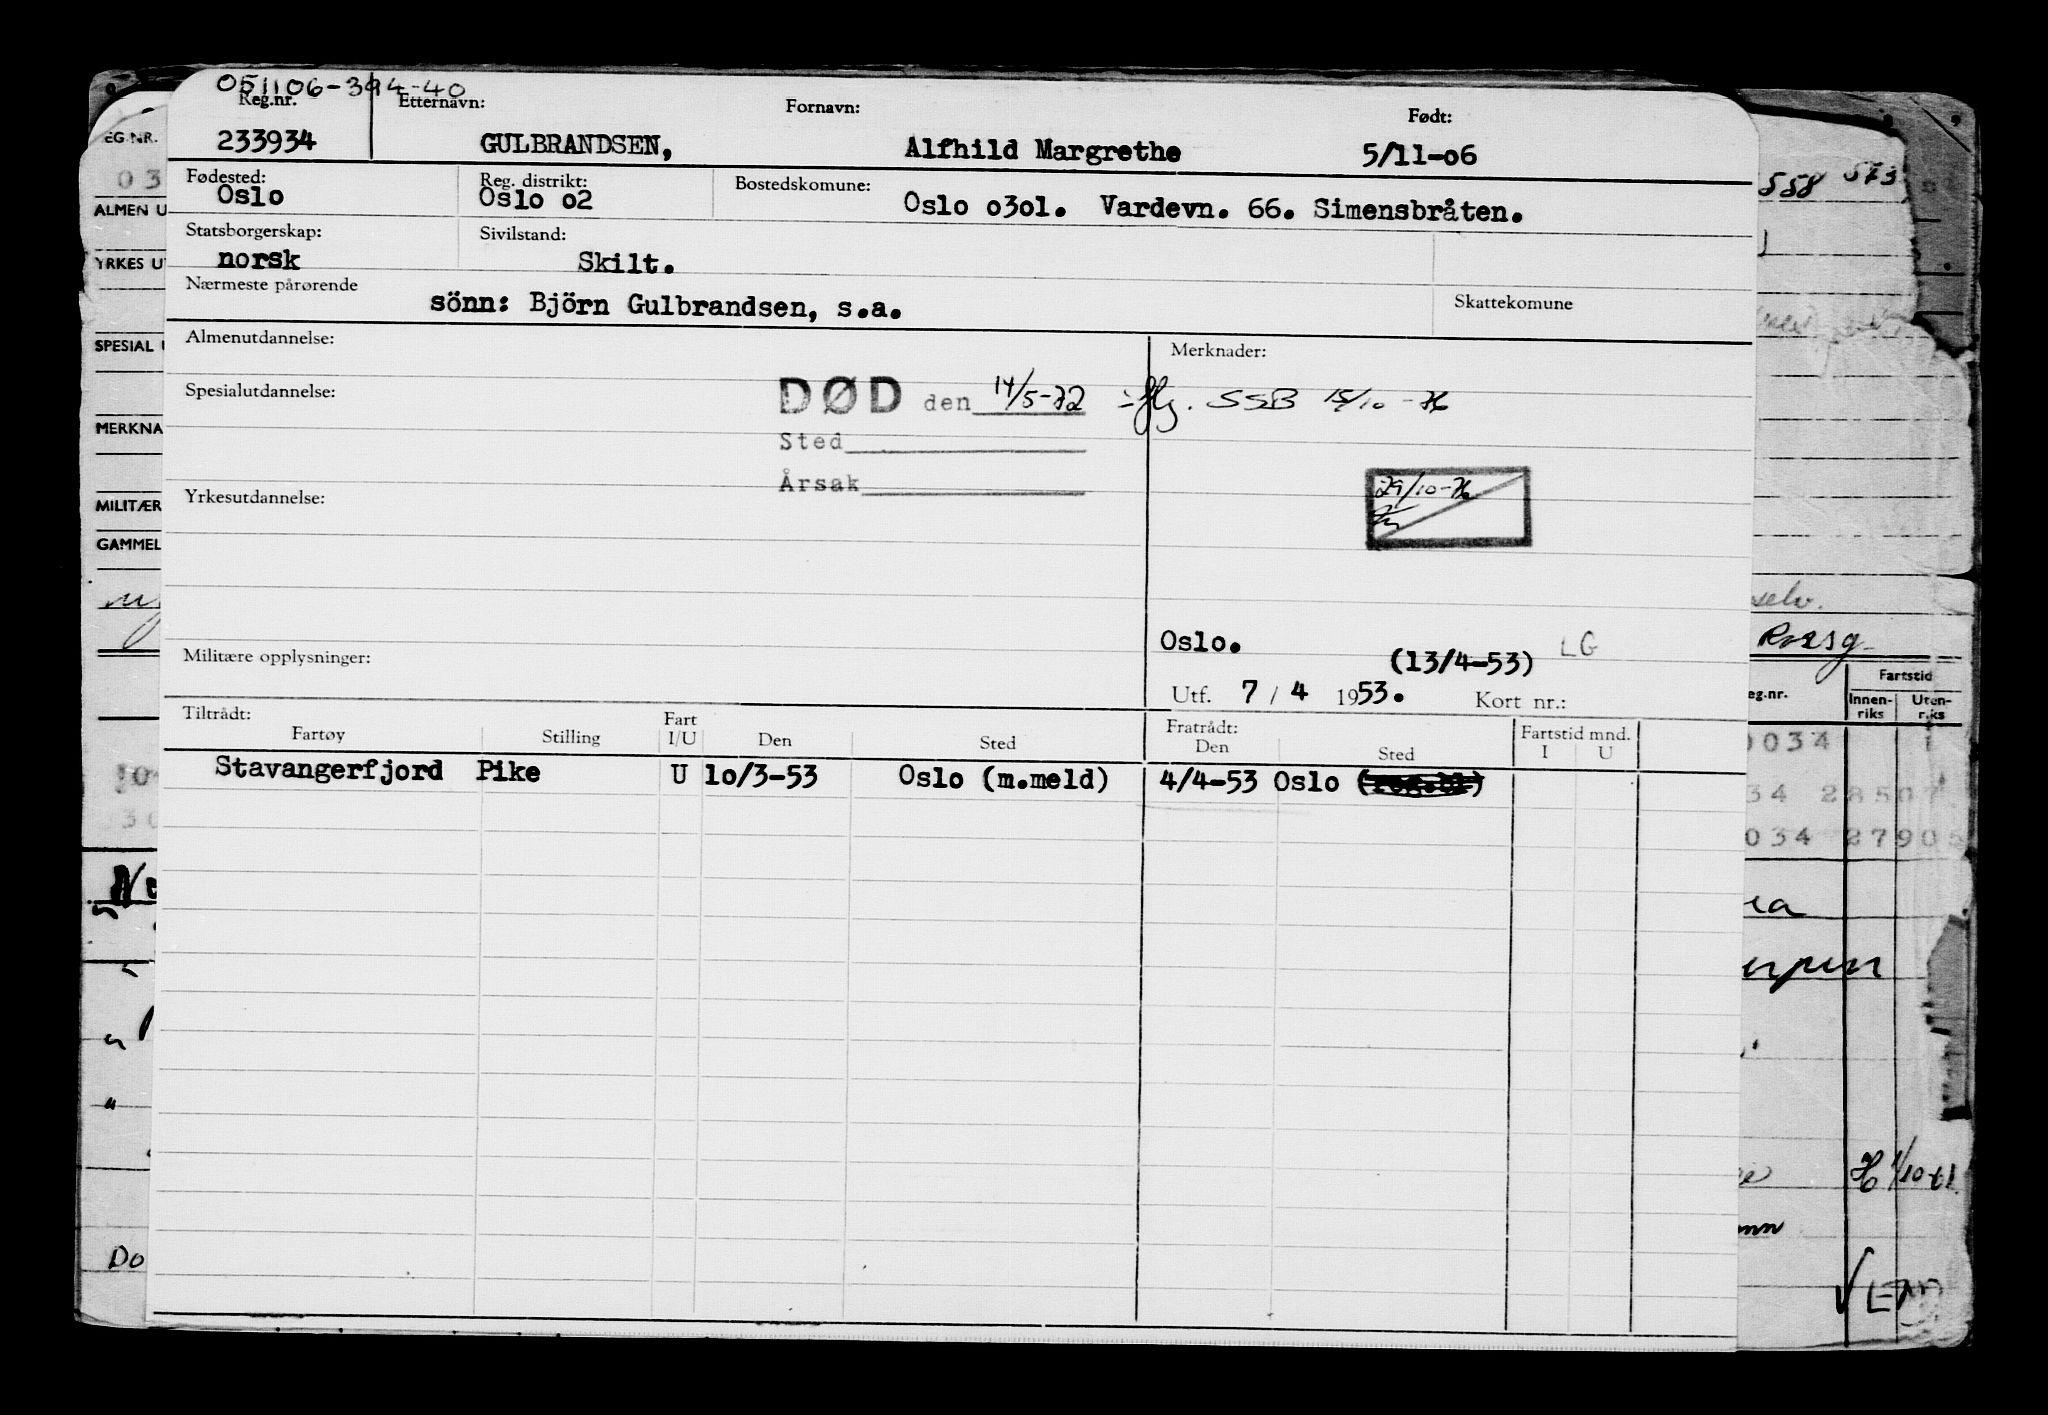 051106-394-40
Reg.nr. Etternavn: Fornavn: Født:
233934 GULBRANDSEN, Alfhild Margrethe 5/11-o6
Fødested: Reg. distrikt: Bostedskomune:
Oslo Oslo o2 Oslo o3ol. Vardevn. 66. Simensbråten.
Statsborgerskap: Sivilstand:
norsk Skilt.
Nærmeste pårørende Skattekomune
sönn: Björn Gulbrandsen, s.a.
Almenutdannelse: Merknader:
Spesialutdannelse:
DØD den 14/5-72 iflg. SSB 15/10-76
Sted
Årsak
29/10-76
Yrkesutdannelse:
Oslo.
Militære opplysninger: (13/4-53) LG
Utf. 7 / 4 1953. Kort nr.:
Tiltrådt: Fratrådt:
Fartøy Stilling Fart I/U Den Sted Den Sted Fartstid mnd. I U
Stavangerfjord Pike U 1o/3-53 Oslo (m.meld) 4/4-53 Oslo
EG.NR.
03
ALMEN U
YRKES UT
SPESIAL U
MERKNA
MILITÆR
GAMMEL
Do
558 573
selv.
eg.nr. Fartstid
Innen-riks Uten-riks
0034 1
34 28507
034 27905
1/10-61